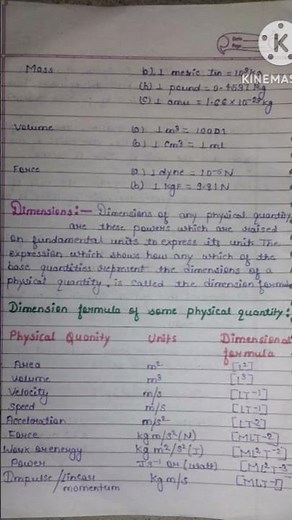 Date
Page
K
KINEMAS
Mass
(a) 1 metric Ton = 10³ Kg
(b) 1 pound = 0.4537 Kg
(c) 1 amu = 1.66 × 10⁻²⁷ kg
Volume
(a) 1 m³ = 1000 l
(b) 1 cm³ = 1 ml
Force
(a) 1 dyne = 10⁻⁵ N
(b) 1 kgF = 9.81 N
Dimensions:— Dimensions of any physical quantity
are these powers which are raised
on fundamental units to express its unit. The
expression which shows how any which of the
base quantities represent the dimensions of a
physical quantity, is called the dimension formula
Dimension formula of some physical quantity:
Physical Quanity Units Dimensional formula
Area m² [L²]
Volume m³ [L³]
Velocity m/s [LT⁻¹]
Speed m/s [LT⁻¹]
Acceleration m/s² [LT⁻²]
Force kg m/s² (N) [MLT⁻²]
Work or energy kg m²/s² (J) [ML²T⁻²]
Power J s⁻¹ or (watt) [ML²T⁻³]
Impulse / linear momentum Kg m/s [MLT⁻¹]